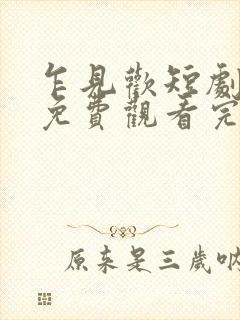 乍見歡短劇
免費觀看完
原来是三歲吶